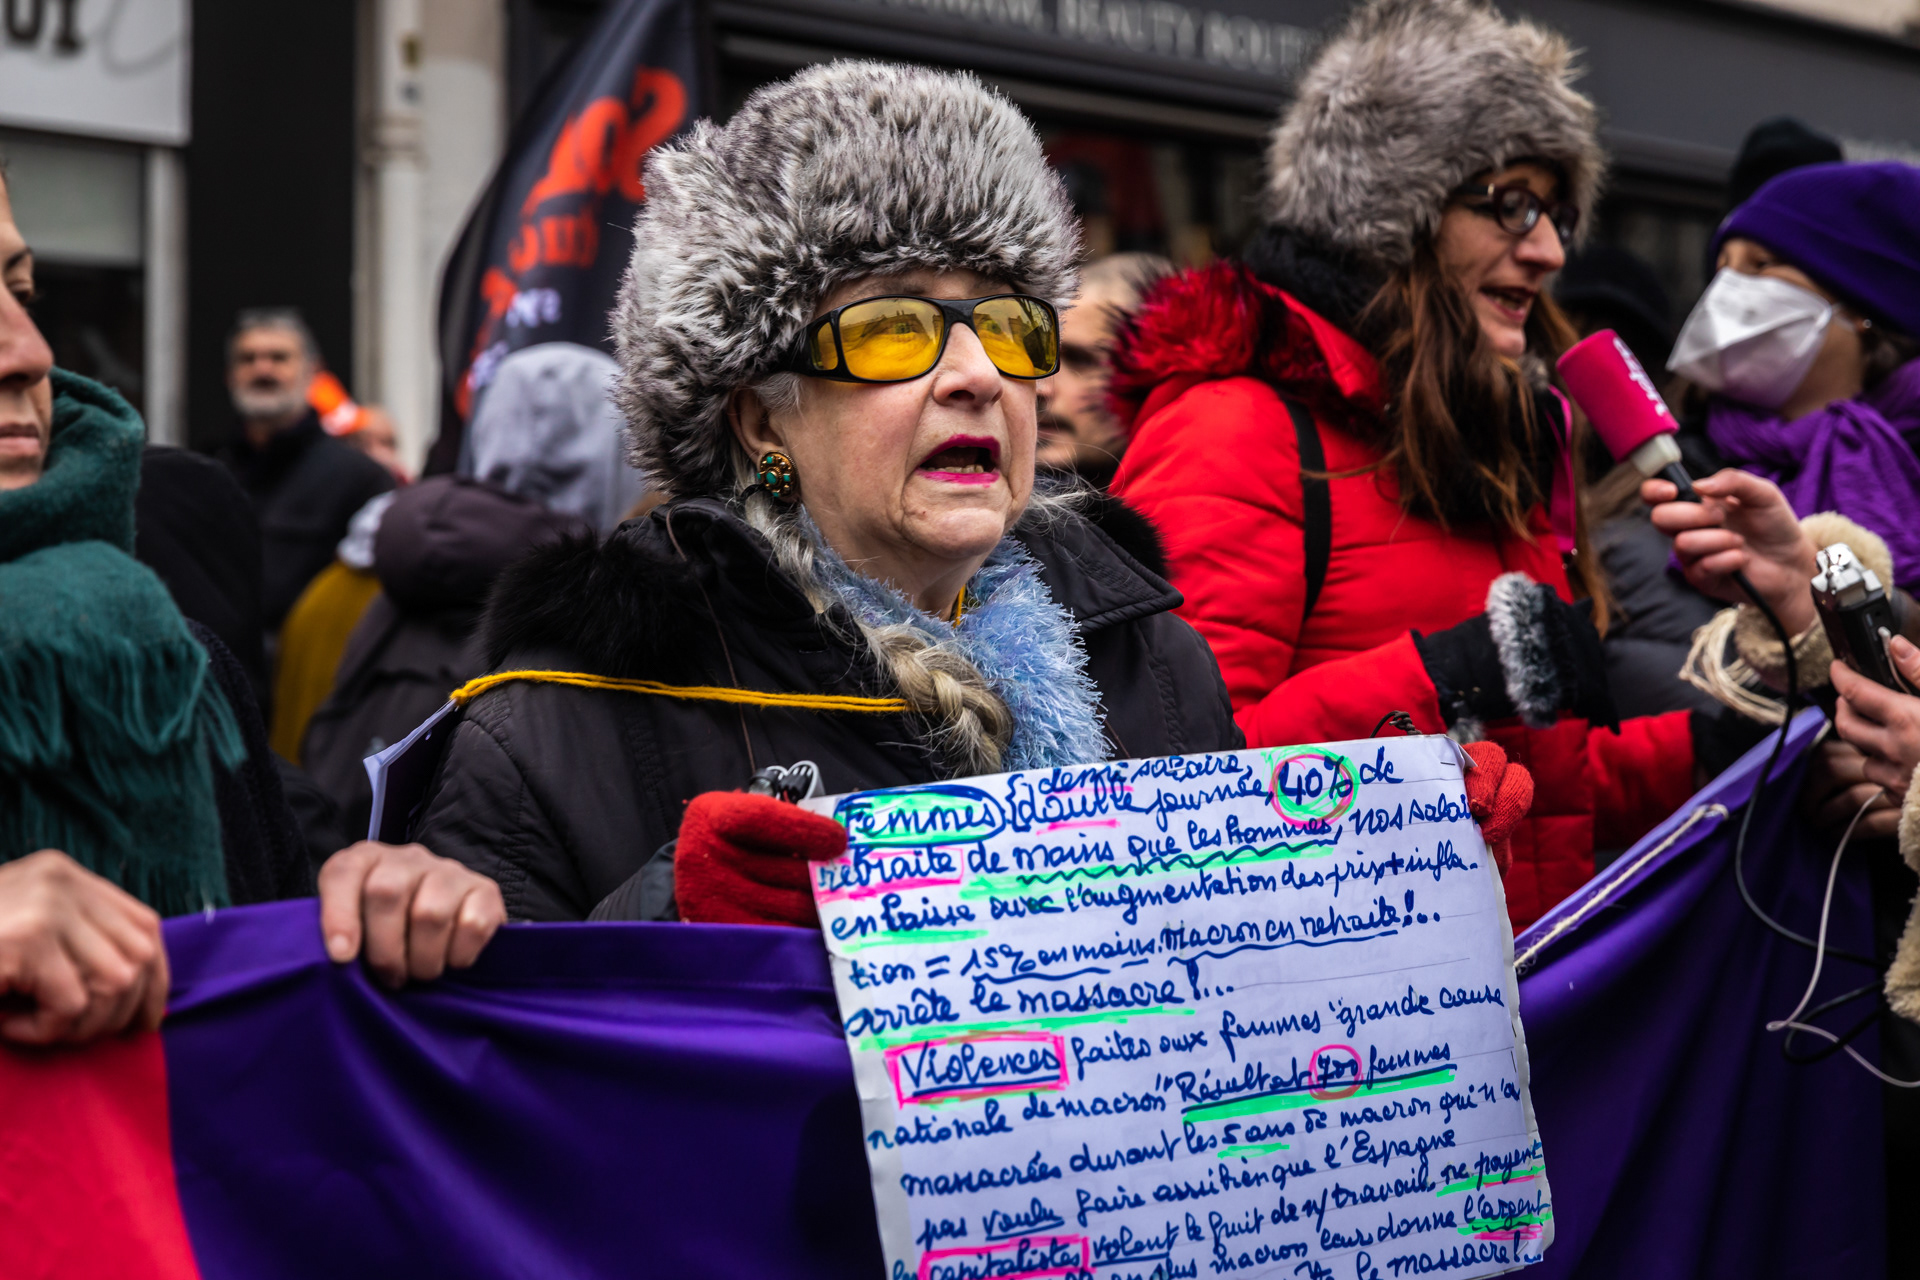 BEAUTY
Femmes { demi salaire,
double journée, 40% de
retraite de moins que les hommes, nos salai
en baisse avec l'augmentation des prix + infla-
tion = 15% en moins. Macron en retraite!..
arrête le massacre!...
Violences faites aux femmes "grande cause
nationale de macron" Résultat 700 femmes
massacrées durant les 5 ans de macron qui n'a
pas voulu faire aussi bien que l'Espagne
capitalistes volent le fruit de n/ travail, ne payent
plus macron leur donne l'argent
le massacre!...